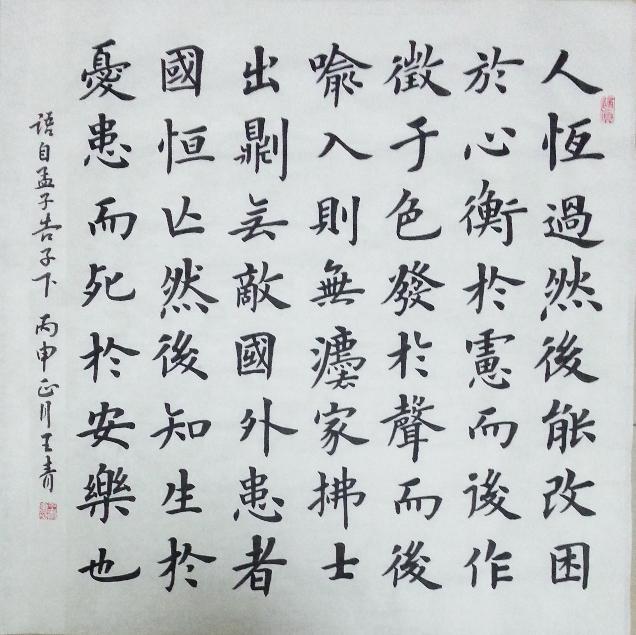 人恆過然後能改困
於心衡於慮而後作
徵于色發於聲而後
喻入則無灋家拂士
出則無敵國外患者
國恒亡然後知生於
憂患而死於安樂也
語自孟子告子下 丙申正月王青